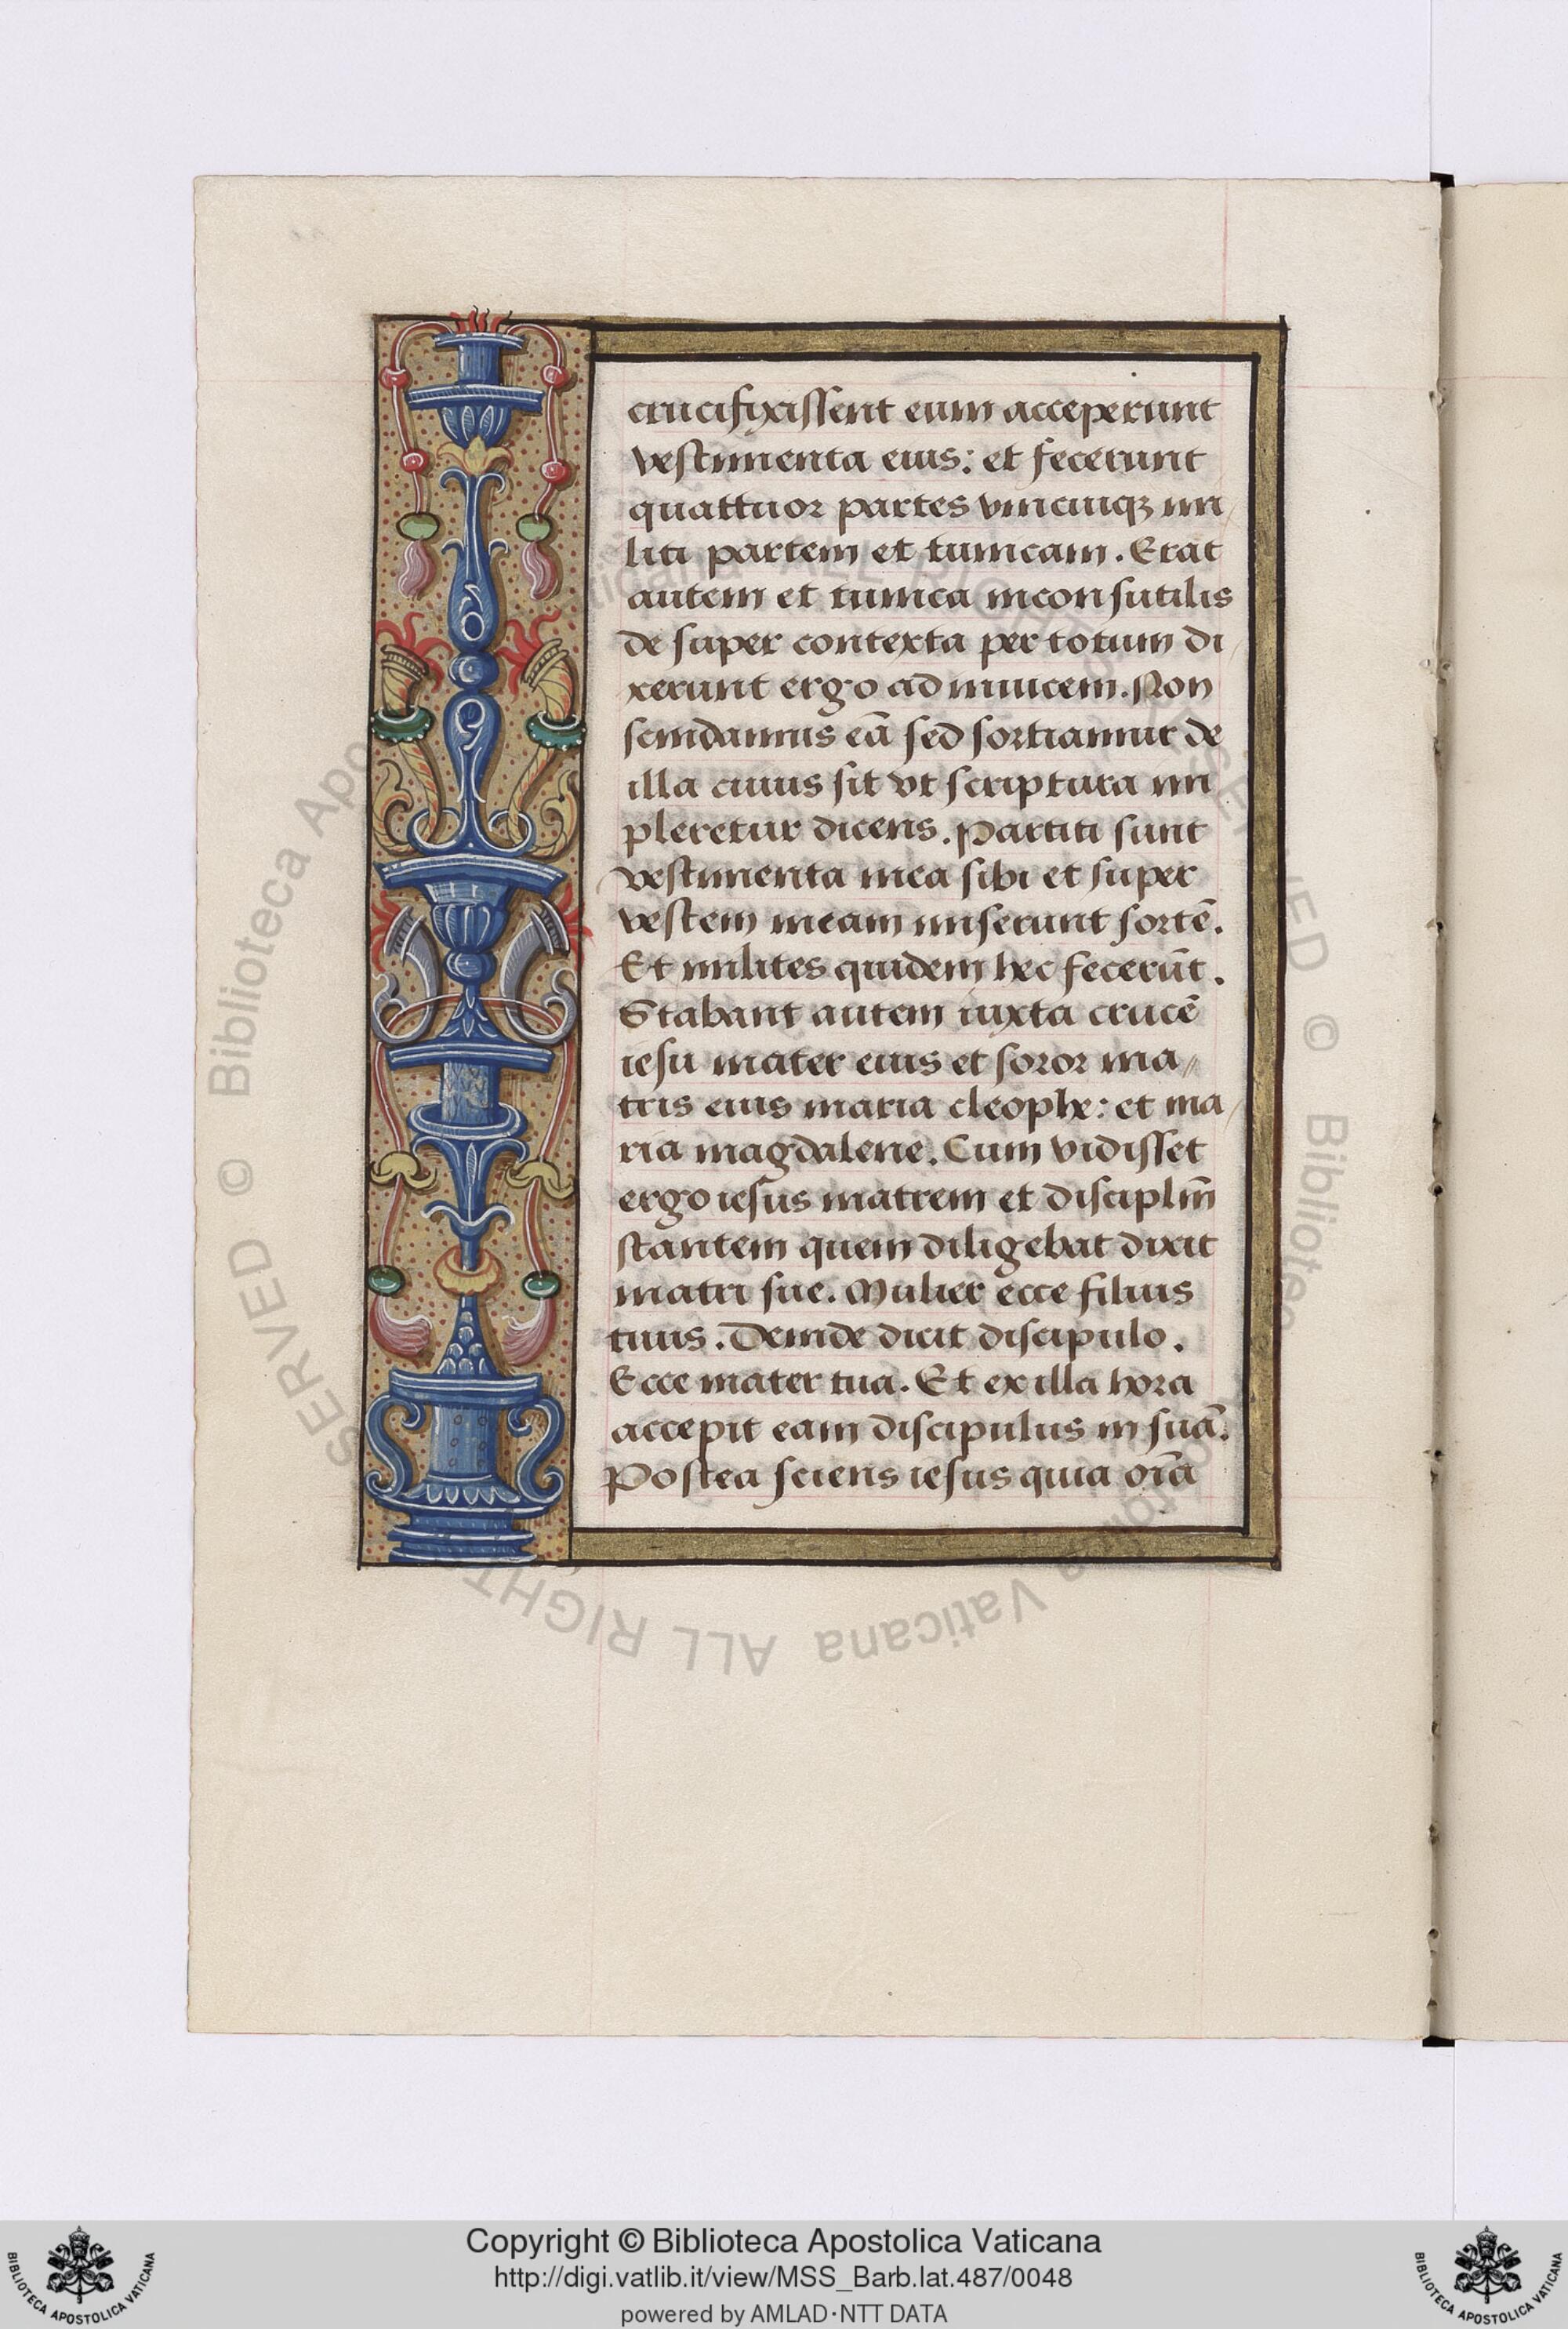 crucifixissent eum acceperunt
vestimenta eius: et fecerunt
quattuor partes vnicuiqꝫ mi
liti partem et tunicam. Erat
autem et tunica inconsutilis
de super contexta per totum di
xerunt ergo ad inuicem. Non
scindamus eā sed sortiamur de
illa cuius sit vt scriptura im
pleretur dicens. Partiti sunt
vestimenta mea sibi et super
vestem meam miserunt sortē.
Et milites quidem hec fecerūt.
Stabant autem iuxta crucē
iesu mater eius et soror ma
tris eius maria cleophe: et ma
ria magdalene. Cum vidisset
ergo iesus matrem et disciplm̄
stantem quem diligebat dixit
matri sue. Mulier ecce filius
tuus. Deinde dicit discipulo.
Ecce mater tua. Et ex illa hora
accepit eam discipulus in suā.
Postea sciens iesus quia oīa
Copyright © Biblioteca Apostolica Vaticana
http://digi.vatlib.it/view/MSS_Barb.lat.487/0048
powered by AMLAD·NTT DATA
BIBLIOTECA APOSTOLICA VATICANA
BIBLIOTECA APOSTOLICA VATICANA